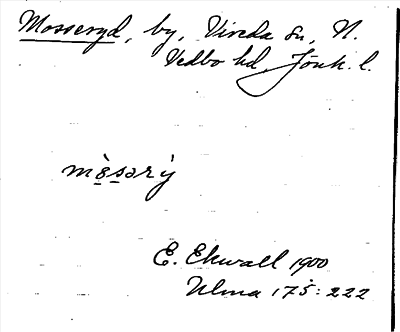 Mosseryd, by, Vireda sn, N.
Vedbo hd, Jönk. l.
mò̱s̱ərý
E. Ekwall 1900
Ulma 175:222